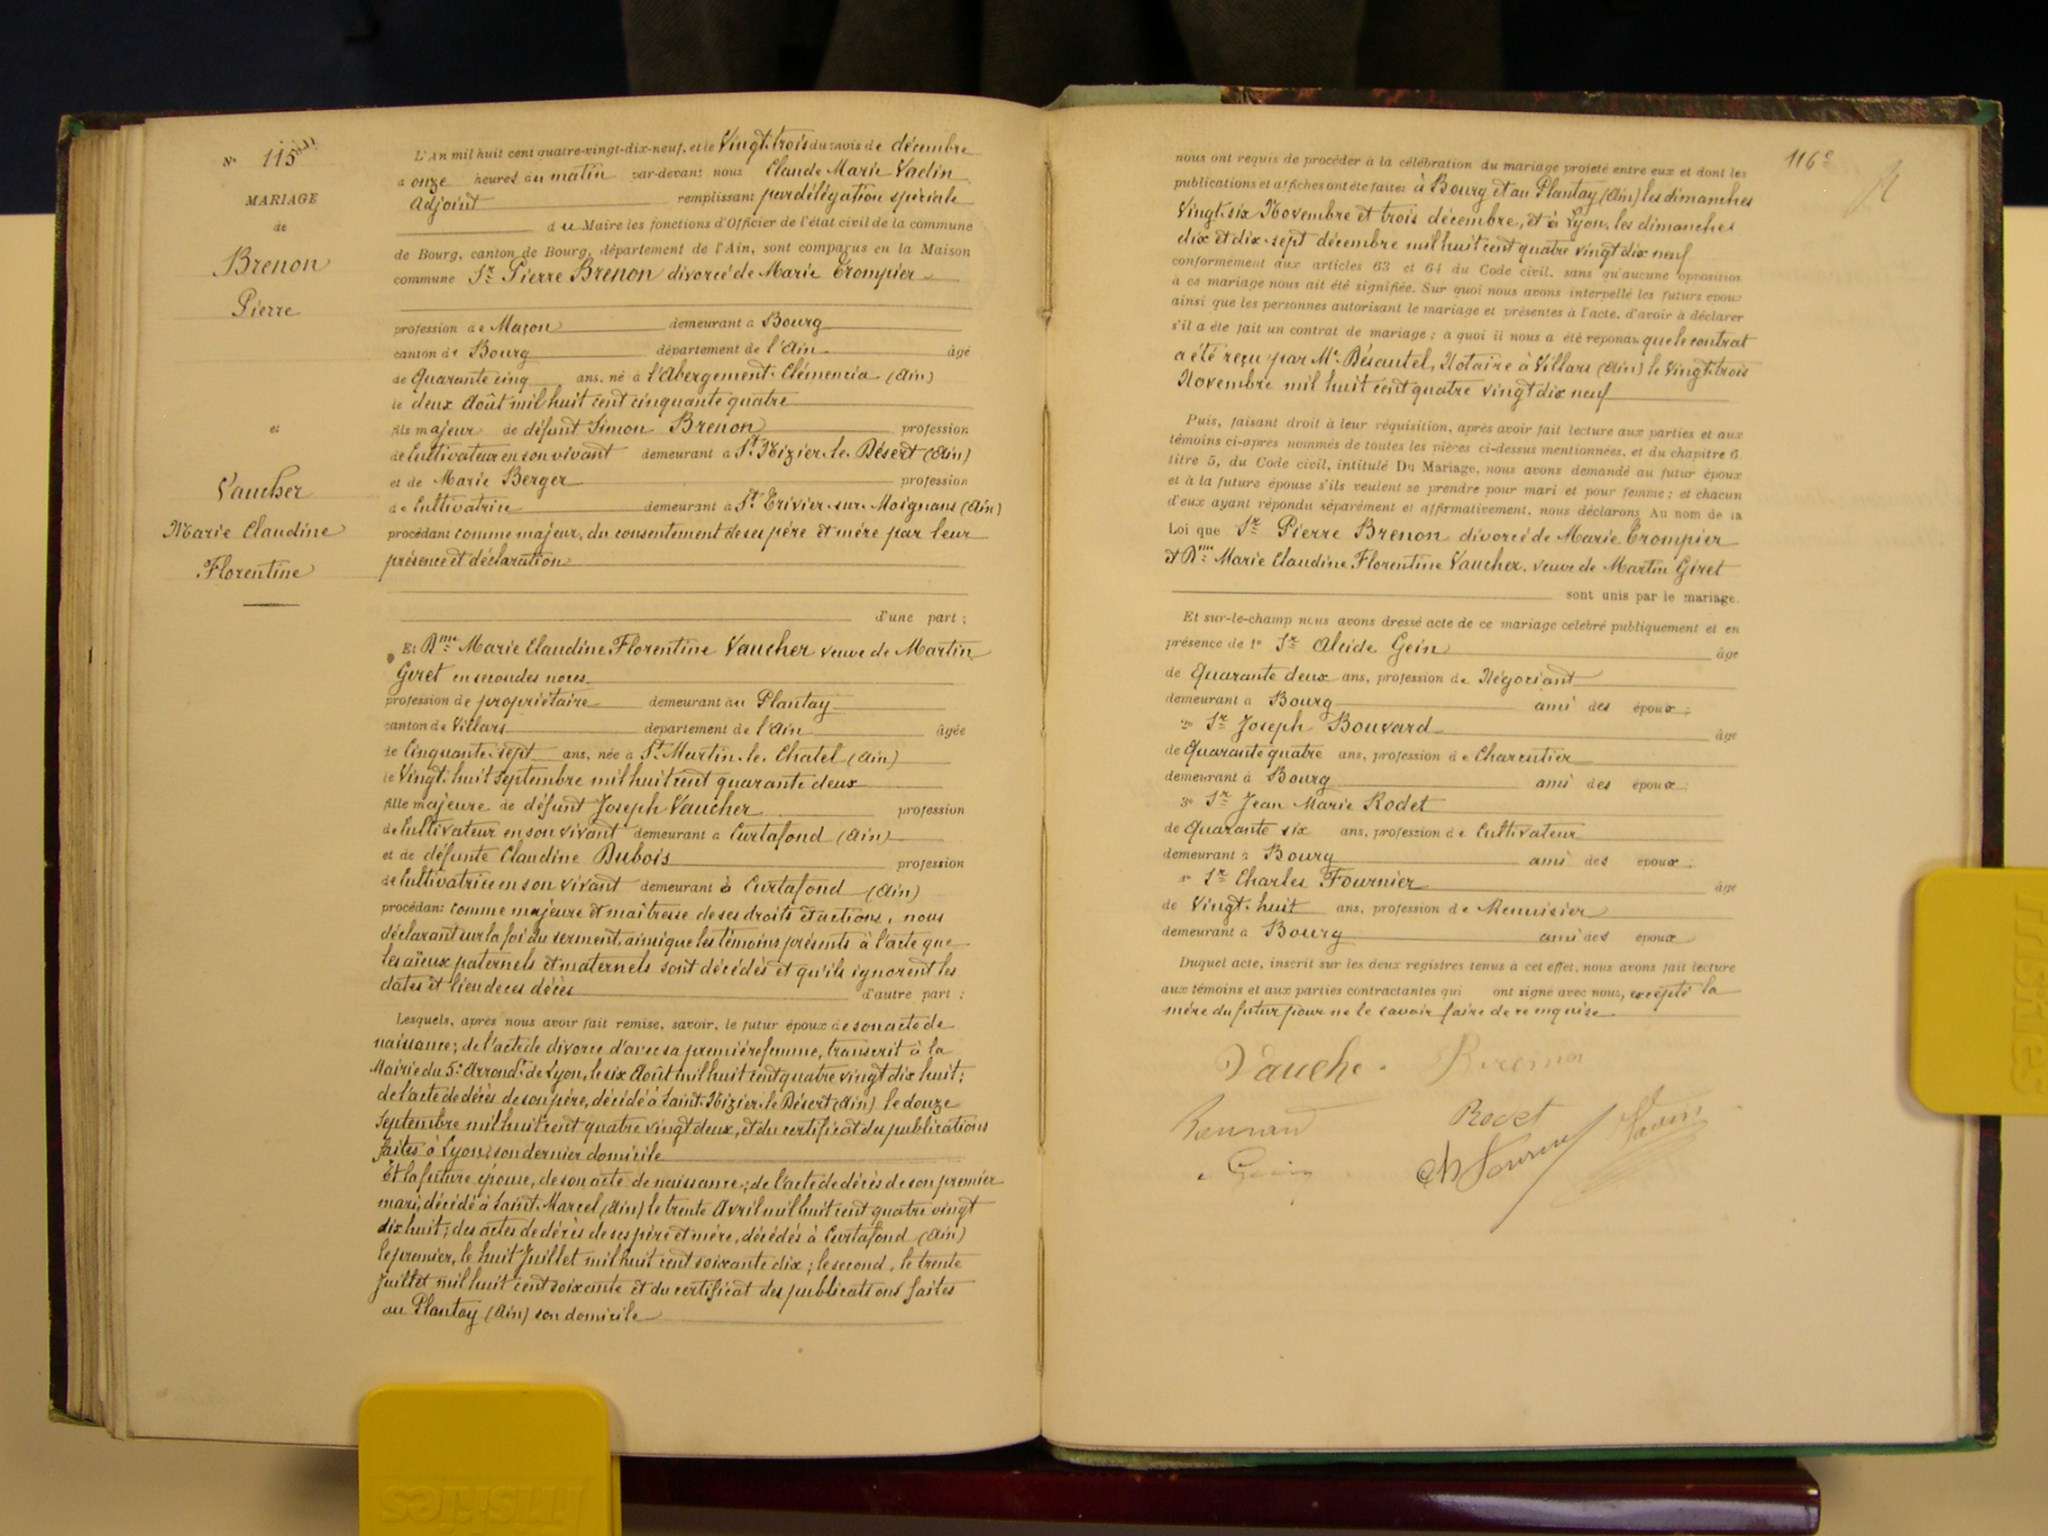 N° 115
MARIAGE
de
Brenon
Pierre
et
Vaucher
Marie Claudine
Florentine
L'An mil huit cent quatre-vingt-dix-neuf, et le Vingt-trois du mois de décembre
à onze heures du matin par-devant nous Claude Marie
Adjoint remplissant par délégation spéciale
du Maire les fonctions d'Officier de l'état civil de la commune
de Bourg, canton de Bourg, département de l'Ain, sont comparus en la Maison
commune Sr Pierre Brenon divorcé de Marie Trompier
profession de Maçon demeurant à Bourg
canton de Bourg département de l'Ain âgé
de Quarante cinq ans, né à l'Abergement-Clémencia (Ain)
le deux Août mil huit cent cinquante quatre
fils majeur de défunt Simon Brenon profession
de Cultivateur en son vivant demeurant à St Nizier-le-Désert (Ain)
et de Marie Berger profession
de Cultivatrice demeurant à St Trivier-sur-Moignans (Ain)
procédant comme majeur, du consentement de ses père et mère par leur
présence et déclaration
d'une part ;
Et Dme Marie Claudine Florentine Vaucher veuve de Martin
Giret en secondes noces
profession de propriétaire demeurant au Plantay
canton de Villars département de l'Ain âgée
de Cinquante-sept ans, née à St Martin-le-Chatel (Ain)
le Vingt-huit septembre mil huit cent quarante deux
fille majeure de défunt Joseph Vaucher profession
de Cultivateur en son vivant demeurant à Curtafond (Ain)
et de défunte Claudine Dubois profession
de Cultivatrice en son vivant demeurant à Curtafond (Ain)
procédant comme majeure et maitresse de ses droits et actions, nous
déclarant sur la foi du serment, ainsi que les témoins présents à l'acte que
les aïeux paternels et maternels sont décédés et qu'ils ignorent les
dates et lieu de ces décès d'autre part ;
Lesquels, après nous avoir fait remise, savoir, le futur époux de son acte de
naissance ; de l'acte de divorce d'avec sa première femme, transcrit à la
Mairie du 5e Arrondt de Lyon, le six Août mil huit cent quatre vingt dix huit ;
de l'acte de décès de son père, décédé à Saint-Nizier-le-Désert (Ain) le douze
Septembre mil huit cent quatre vingt deux, et du certificat des publications
faites à Lyon, son dernier domicile
Et la future épouse, de son acte de naissance ; de l'acte de décès de son premier
mari, décédé à Saint-Marcel (Ain) le trente Avril mil huit cent quatre vingt
dix huit ; des actes de décès de ses père et mère, décédés à Curtafond (Ain)
le premier, le huit Juillet mil huit cent soixante dix ; le second, le trente
Juillet mil huit cent soixante et du certificat des publications faites
au Plantay (Ain) son domicile
116e
nous ont requis de procéder à la célébration du mariage projeté entre eux et dont les
publications et affiches ont été faites à Bourg et au Plantay (Ain) les dimanches
Vingt-six Novembre et trois décembre, et à Lyon, les dimanches
dix et dix-sept décembre mil huit cent quatre vingt dix neuf
conformément aux articles 63 et 64 du Code civil, sans qu'aucune opposition
à ce mariage nous ait été signifiée. Sur quoi nous avons interpellé les futurs époux
ainsi que les personnes autorisant le mariage et présentes à l'acte, d'avoir à déclarer
s'il a été fait un contrat de mariage ; à quoi il nous a été répondu que le contrat
a été reçu par Me Désautel, Notaire à Villars (Ain) le Vingt-trois
Novembre mil huit cent quatre vingt dix neuf
Puis, faisant droit à leur réquisition, après avoir fait lecture aux parties et aux
témoins ci-après nommés de toutes les pièces ci-dessus mentionnées, et du chapitre 6
titre 5, du Code civil, intitulé Du Mariage, nous avons demandé au futur époux
et à la future épouse s'ils veulent se prendre pour mari et pour femme ; et chacun
d'eux ayant répondu séparément et affirmativement, nous déclarons Au nom de la
Loi que Sr Pierre Brenon divorcé de Marie Trompier
et Dme Marie Claudine Florentine Vaucher, veuve de Martin Giret
sont unis par le mariage.
Et sur-le-champ nous avons dressé acte de ce mariage célébré publiquement et en
présence de 1° Sr Alcide Gein âgé
de Quarante deux ans, profession de Négociant
demeurant à Bourg ami des époux ;
2° Sr Joseph Bouvard âgé
de Quarante quatre ans, profession de Charentier
demeurant à Bourg ami des époux ;
3° Sr Jean Marie Rodet
de Quarante six ans, profession de Cultivateur
demeurant à Bourg ami des époux ;
Sr Charles Fournier âgé
de Vingt-huit ans, profession de Menuisier
demeurant à Bourg ami des époux
Duquel acte, inscrit sur les deux registres tenus à cet effet, nous avons fait lecture
aux témoins et aux parties contractantes qui ont signé avec nous, excepté la
mère du futur pour ne le savoir faire de ce enquise
Vauche Brenon
Rodet
Gein Ch Fournier